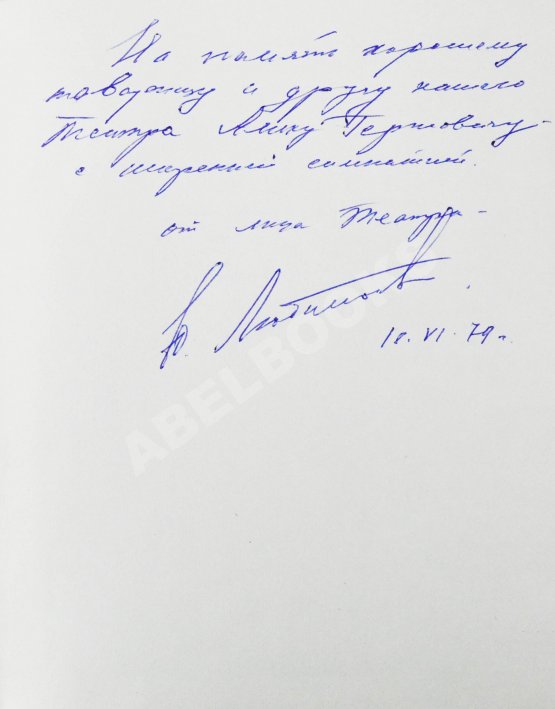 На память хорошему
товарищу и другу нашего
Театра Алику Герцовичу -
с искренней симпатией.
от лица Театра -
Ю. Любимов.
10. VI. 79 г.
ABELBOOKS